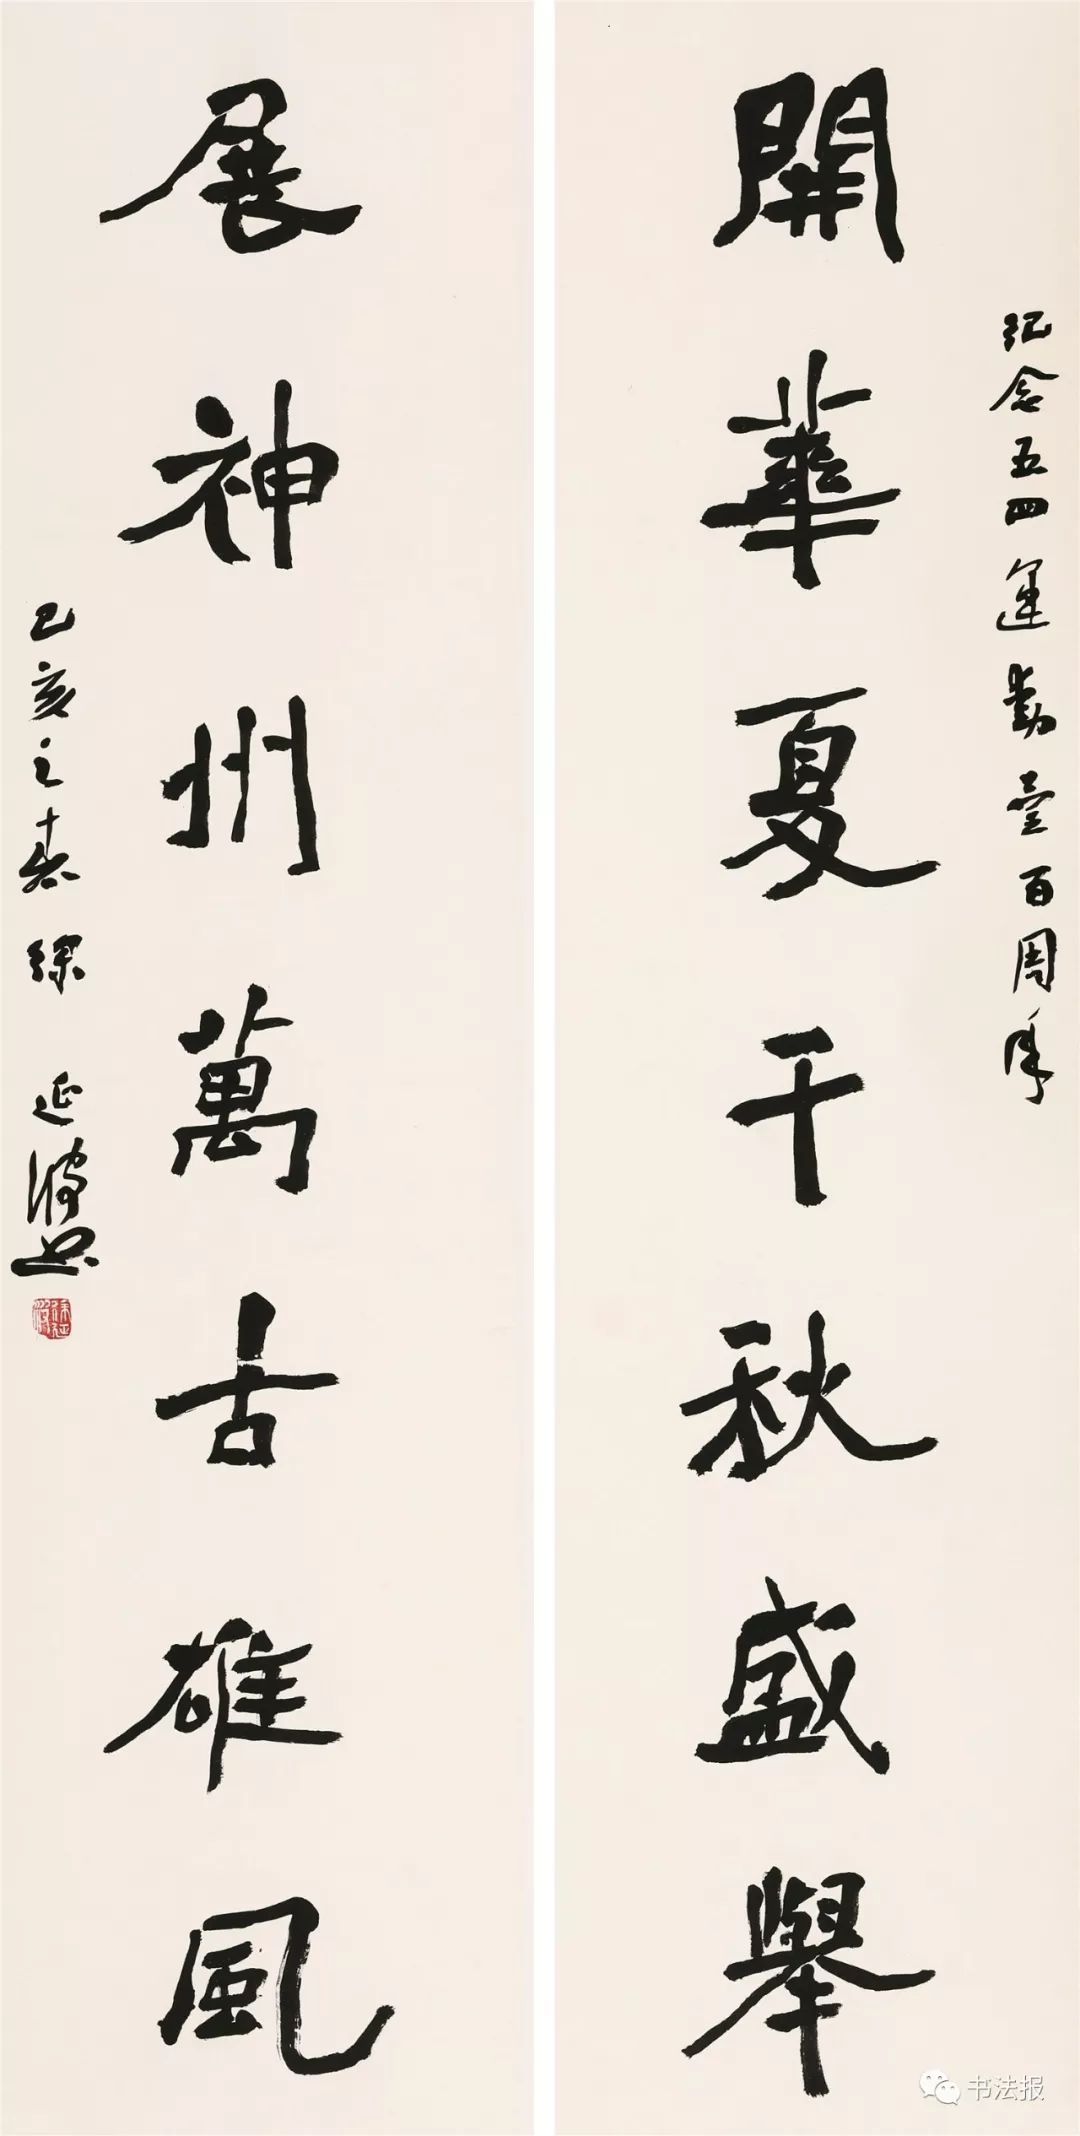 紀念五四運動壹百周年
開華夏千秋盛舉
展神州萬古雄風
己亥之春 徐延波書
书法报